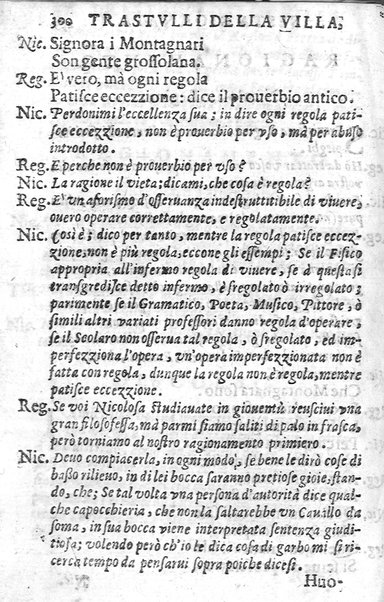 300 TRASTVLLI DELLA VILLA,
Nic. Signora i Montagnari
Son gente grossolana.
Reg. E' vero, mà ogni regola
Patisce eccezzione: dice il prouerbio antico.
Nic. Perdonimi l'eccellenza sua; in dire ogni regola pati-
sce eccezzione, non è prouerbio per vso, mà per abuso
introdotto.
Reg. E perche non è prouerbio per vso?
Nic. La ragione il vieta; dicami, che cosa è regola?
Reg. E' vn'aforismo d'osseruanza indestruttibile di viuere,
ouero operare correttamente, e regolatamente.
Nic. Così è; dico per tanto, mentre la regola patisce eccez-
zione, non è più regola, eccone gli essempi; Se il Fisico
appropria all'infermo regola di viuere, se d questa si
transgredisce detto infermo, è sregolato ò irregolato;
parimente se il Gramatico, Poeta, Musico, Pittore, ò
simili altri variati professori danno regola d'operare,
se il Scolaro non osserua tal regola, ò sregolato, ed im-
perfezziona l'opera, vn'opera imperfezzionata non è
fatta con regola, dunque la regola non è regola, mentre
patisce eccezzione.
Reg. Se voi Nicolosa Studiauate in giouentù reusciui vna
gran filosofessa, mà parmi siamo saliti di palo in frasca,
però torniamo al nostro ragionamento primiero.
Nic. Deuo compiacerla, in ogni modo, se bene le dirò cose di
basso rilieuo, in di lei bocca saranno pretiose gioie, stan-
do, che; Se tal volta vna persona d'autorità dice qual-
che capocchieria, che non la saltarebbe vn Cauallo da
soma, in sua bocca viene interpretata sentenza giudi-
tiosa; volendo però ch'io le dica cosa di garbo mi si ri-
cerca tempo da pensarui sopra poiche dicesi.
Huo-